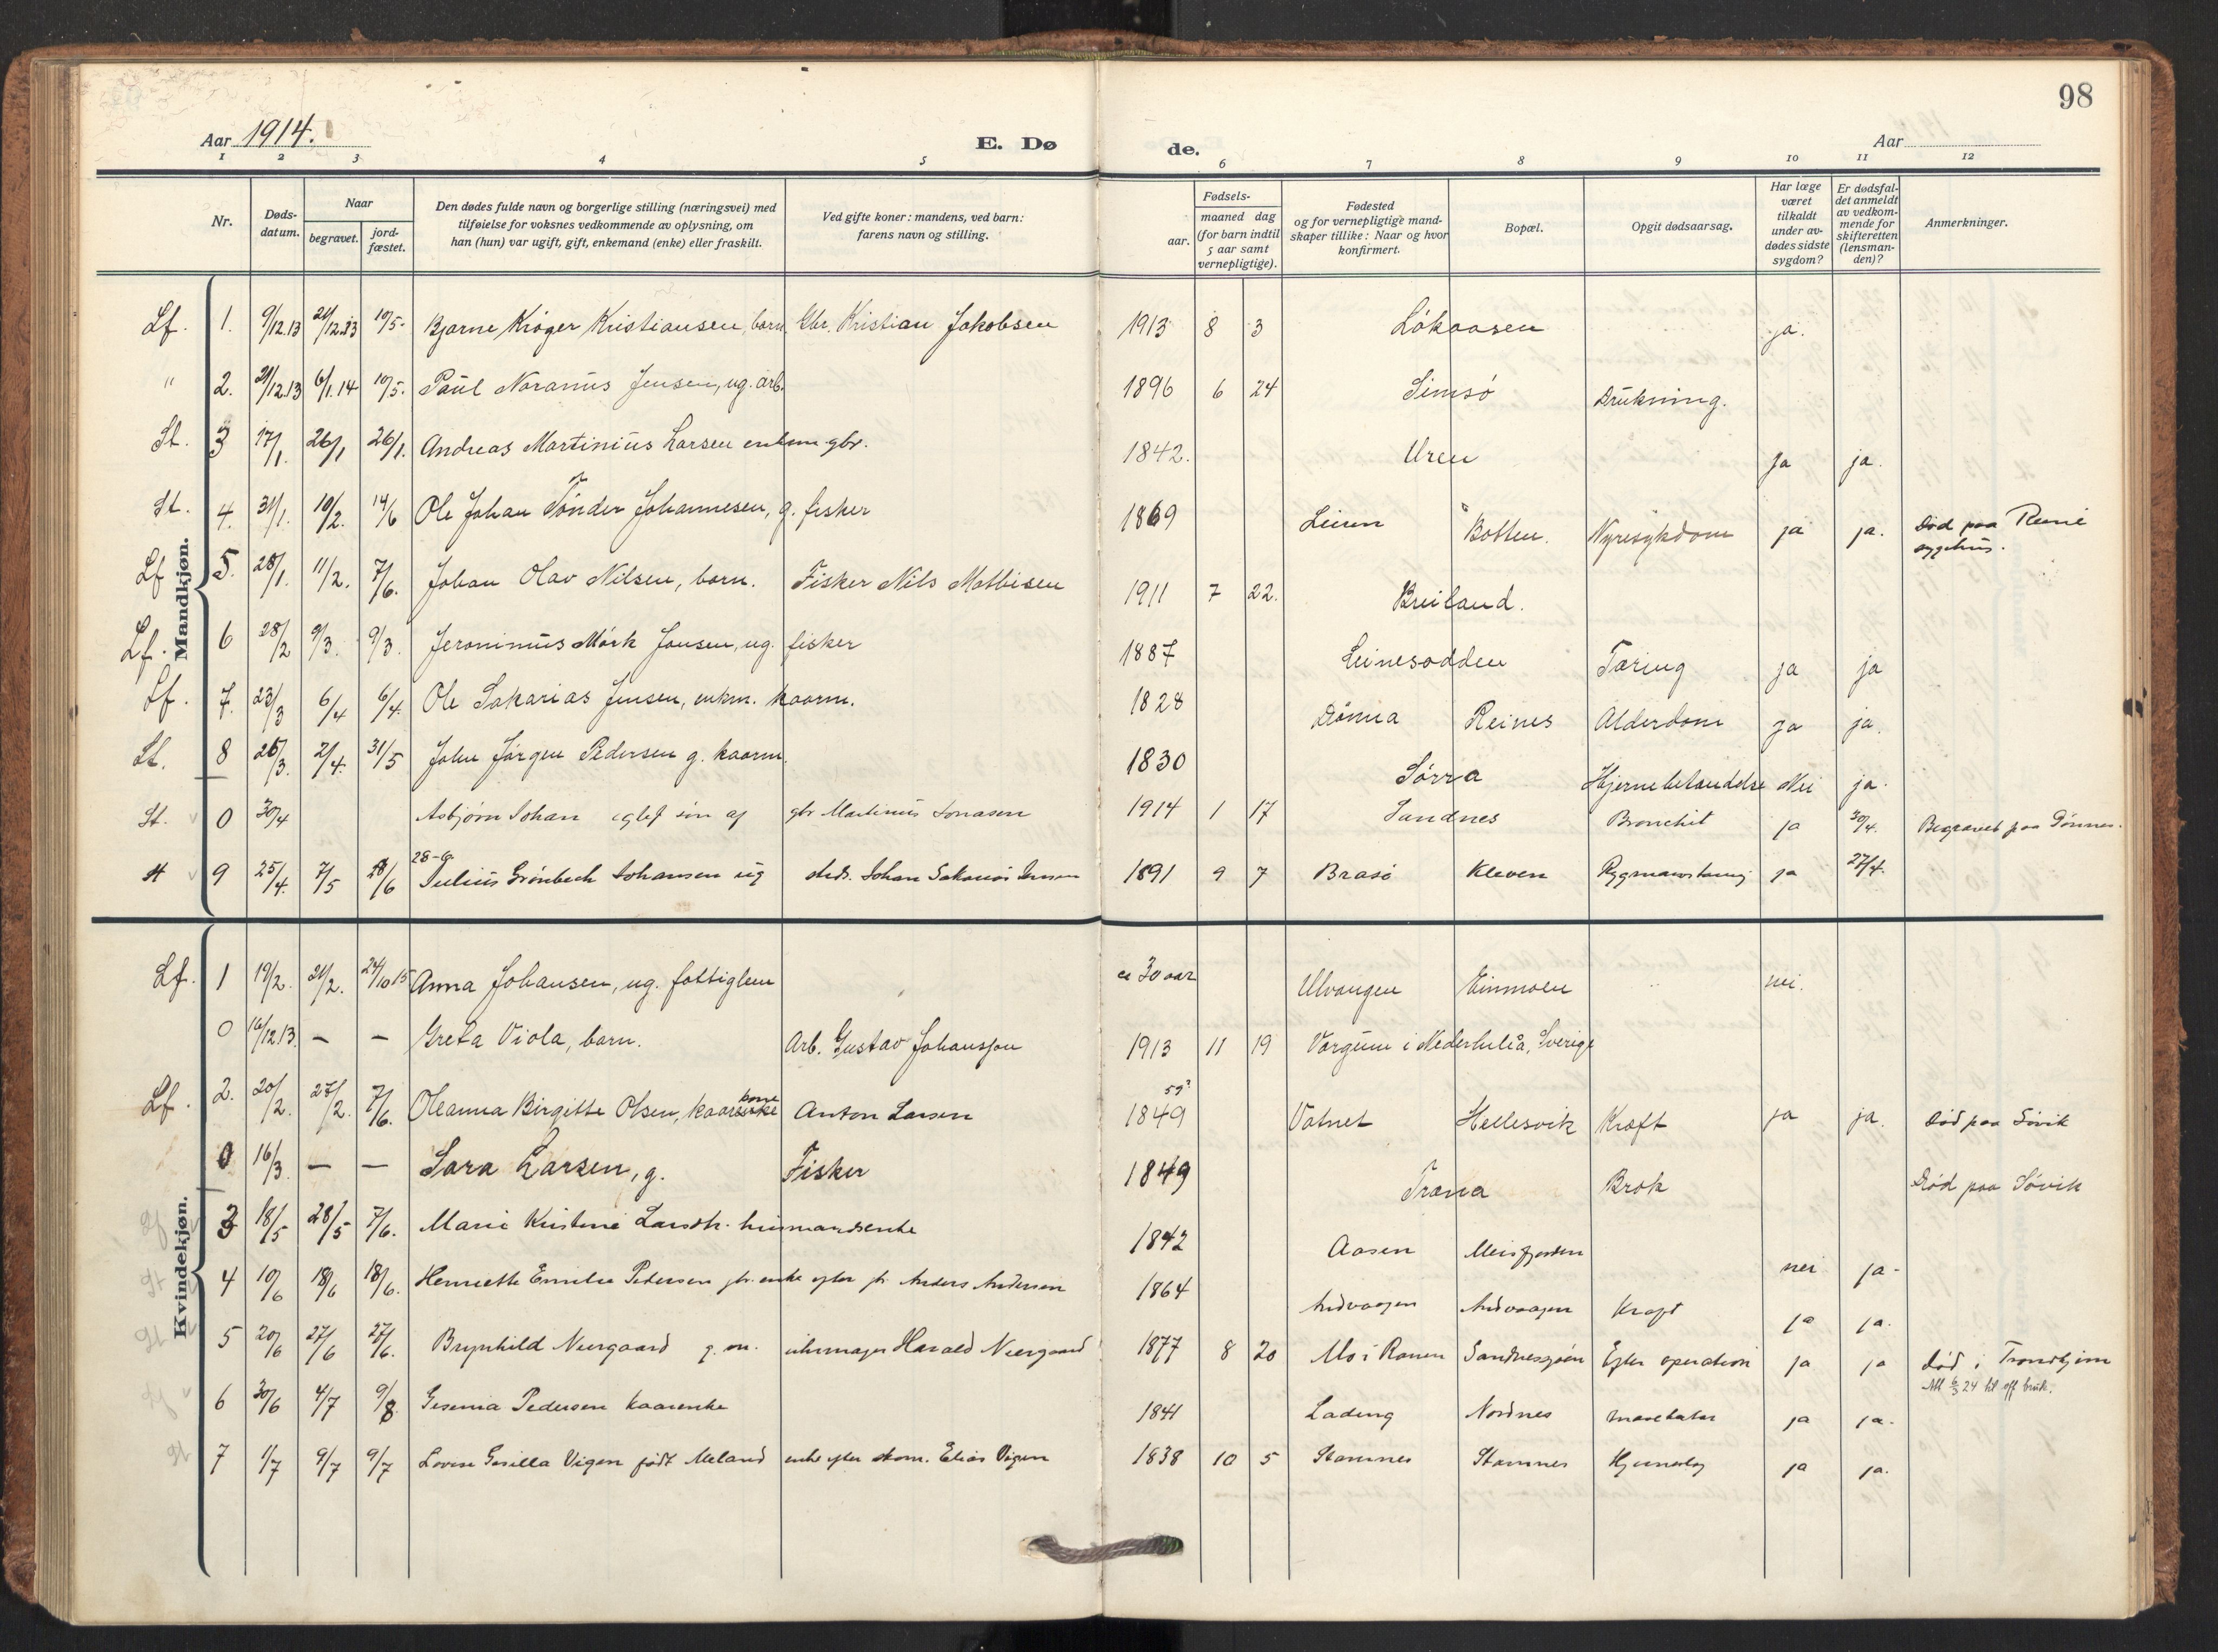 98
Aar 1914.
E. Dø
de.
Aar
1 2 3 4 5 6 7 8 9 10 11 12
Nr.
Døds-
datum.
Naar
begravet.
jord-
fæstet.
Den dødes fulde navn og borgerlige stilling (næringsvei) med
tilføielse for voksnes vedkommende av oplysning, om
han (hun) var ugift, gift, enkemand (enke) eller fraskilt.
Ved gifte koner: mandens, ved barn:
farens navn og stilling.
aar.
Fødsels-
maaned dag
(for barn indtil
5 aar samt
vernepligtige).
Fødested
og for vernepligtige mand-
skaper tillike: Naar og hvor
konfirmert.
Bopæl.
Opgit dødsaarsag.
Har læge
været
tilkaldt
under av-
dødes sidste
sygdom?
Er dødsfal-
det anmeldt
av vedkom-
mende for
skifteretten
(lensman-
den)?
Anmerkninger.
Mandkjøn.
Lf. 1. 9/12.13 21/12.13 10/5. Bjarne Krøger Kristiansen, barn Gbr. Kristian Jakobsen 1913 8 3 Løkaasen ja.
" 2. 21/12.13 6/1.14 10/5. Paul Noranus Jensen, ug. arb. 1896 6 24 Simsø Drukning.
St. 3 17/1. 26/1 26/1. Andreas Martinius Larsen enkem. gbr. 1842. Uren ja ja.
St. 4. 31/1. 10/2. 14/6 Ole Johan Tønder Johannesen, g. fisker 1869 Leiren Botten. Nyresykdom ja ja. Død paa
sygehus.
Lf 5. 28/1. 11/2. 7/6. Johan Olav Nilsen, barn. Fisker Nils Mathisen 1911 7 22. Breiland.
Lf. 6 28/2 9/3. 9/3. Jeronimus Mørk Jensen, ug. fisker 1887 Leinesodden Tæring ja ja
Lf. 7. 23/3 6/4 6/4. Ole Sakarias Jensen, enkm. kaarm. 1828 Dønna Reines Alderdom ja ja.
St. 8 26/3. 2/4. 31/5 John Jørgen Pedersen g. kaarm. 1830 Sørra Hjernebetændelse Nei ja.
St. 0 30/4 Asbjørn Johan egtef søn af gbr Martinus Jonasen 1914 1 17 Sundnes Bronchit ja 30/4. Begravet paa Dønnes.
28-6
St 9 25/4. 7/5 28/6 Julius Grønbech Johansen ug Johan Sakarias Jensen 1891 9 7 Brasø Kleven ja 27/4.
Kvindekjøn.
Lf. 1 19/2. 21/2. 24/10 15 Anna Johansen, ug. fattiglem ca 30 aar Ulvangen Einmoen nei.
0 16/12.13. — — Greta Viola, barn. Arb. Gustav Johansson 1913 11 19 i Nederluleå, Sverige
59?
Lf. 2. 20/2. 27/2. 7/6. Oleanna Birgitte Olsen, kaarenke kone Anton Larsen 1849 Vatnet Hellesvik Kræft ja ja. Død paa Søvik
0 16/3 — — Sara Larsen, g. Fisker 1849 Træna Brok Død paa Søvik
3 18/5 28/5 7/6. Marie Kristine Larsdtr. husmandsenke 1842 Aasen Meisfjorden nei ja-
St 4 10/6 18/6 18/6. Henriette Emilie Pedersen gbr. enke efter gbr. Anders Andersen 1864 Andvaagen Andvaagen Kraft ja ja.
St 5 20/6 27/6 27/6. Brynhild Neergaard g. m. uhrmager Harald Neergaard 1877 8 20 Mo i Ranen Sandnessjøen Efter operation ja ja død i Trondhjem
Att 6/3 24 til off bruk.
Lf 6 30/6 4/7 9/8 Gesenia Pedersen kaarenke 1841 Lading Nordnes ja ja.
St 7 1/7 9/7 9/7 Lovise Gesilla Vigen født Meland enke efter skom. Elias Vigen 1838 10 5 Stamnes Stamnes ja ja.